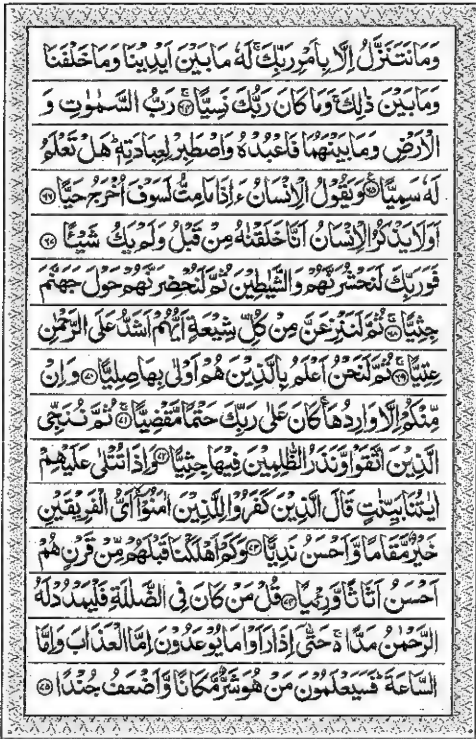 وَمَا نَتَنَزَّلُ اِلَّا بِاَمْرِ رَبِّكَ ۚ لَهٗ مَا بَيْنَ اَيْدِيْنَا وَمَا خَلْفَنَا
وَمَا بَيْنَ ذٰلِكَ ۚ وَمَا كَانَ رَبُّكَ نَسِيًّا ۚ ﴿۶۴﴾ رَبُّ السَّمٰوٰتِ وَ
الْاَرْضِ وَمَا بَيْنَهُمَا فَاعْبُدْهُ وَاصْطَبِرْ لِعِبَادَتِهٖ ؕ هَلْ تَعْلَمُ
لَهٗ سَمِيًّا ﴿۶۵﴾ وَيَقُوْلُ الْاِنْسَانُ ءَاِذَا مَا مِتُّ لَسَوْفَ اُخْرَجُ حَيًّا ﴿۶۶﴾
اَوَلَا يَذْكُرُ الْاِنْسَانُ اَنَّا خَلَقْنٰهُ مِنْ قَبْلُ وَلَمْ يَكُ شَيْـًٔا ﴿۶۷﴾
فَوَرَبِّكَ لَنَحْشُرَنَّهُمْ وَالشَّيٰطِيْنَ ثُمَّ لَنُحْضِرَنَّهُمْ حَوْلَ جَهَنَّمَ
جِثِيًّا ۚ ﴿۶۸﴾ ثُمَّ لَنَنْزِعَنَّ مِنْ كُلِّ شِيْعَةٍ اَيُّهُمْ اَشَدُّ عَلَى الرَّحْمٰنِ
عِتِيًّا ۚ ﴿۶۹﴾ ثُمَّ لَنَحْنُ اَعْلَمُ بِالَّذِيْنَ هُمْ اَوْلٰى بِهَا صِلِيًّا ﴿۷۰﴾ وَاِنْ
مِّنْكُمْ اِلَّا وَارِدُهَا ۚ كَانَ عَلٰى رَبِّكَ حَتْمًا مَّقْضِيًّا ۚ ﴿۷۱﴾ ثُمَّ نُنَجِّى
الَّذِيْنَ اتَّقَوْا وَّنَذَرُ الظّٰلِمِيْنَ فِيْهَا جِثِيًّا ﴿۷۲﴾ وَاِذَا تُتْلٰى عَلَيْهِمْ
اٰيٰتُنَا بَيِّنٰتٍ قَالَ الَّذِيْنَ كَفَرُوْا لِلَّذِيْنَ اٰمَنُوْٓا ۙ اَىُّ الْفَرِيْقَيْنِ
خَيْرٌ مَّقَامًا وَّاَحْسَنُ نَدِيًّا ﴿۷۳﴾ وَكَمْ اَهْلَكْنَا قَبْلَهُمْ مِّنْ قَرْنٍ هُمْ
اَحْسَنُ اَثَاثًا وَّرِءْيًا ﴿۷۴﴾ قُلْ مَنْ كَانَ فِى الضَّلٰلَةِ فَلْيَمْدُدْ لَهُ
الرَّحْمٰنُ مَدًّا ۚ حَتّٰٓى اِذَا رَاَوْا مَا يُوْعَدُوْنَ اِمَّا الْعَذَابَ وَاِمَّا
السَّاعَةَ ؕ فَسَيَعْلَمُوْنَ مَنْ هُوَ شَرٌّ مَّكَانًا وَّاَضْعَفُ جُنْدًا ﴿۷۵﴾